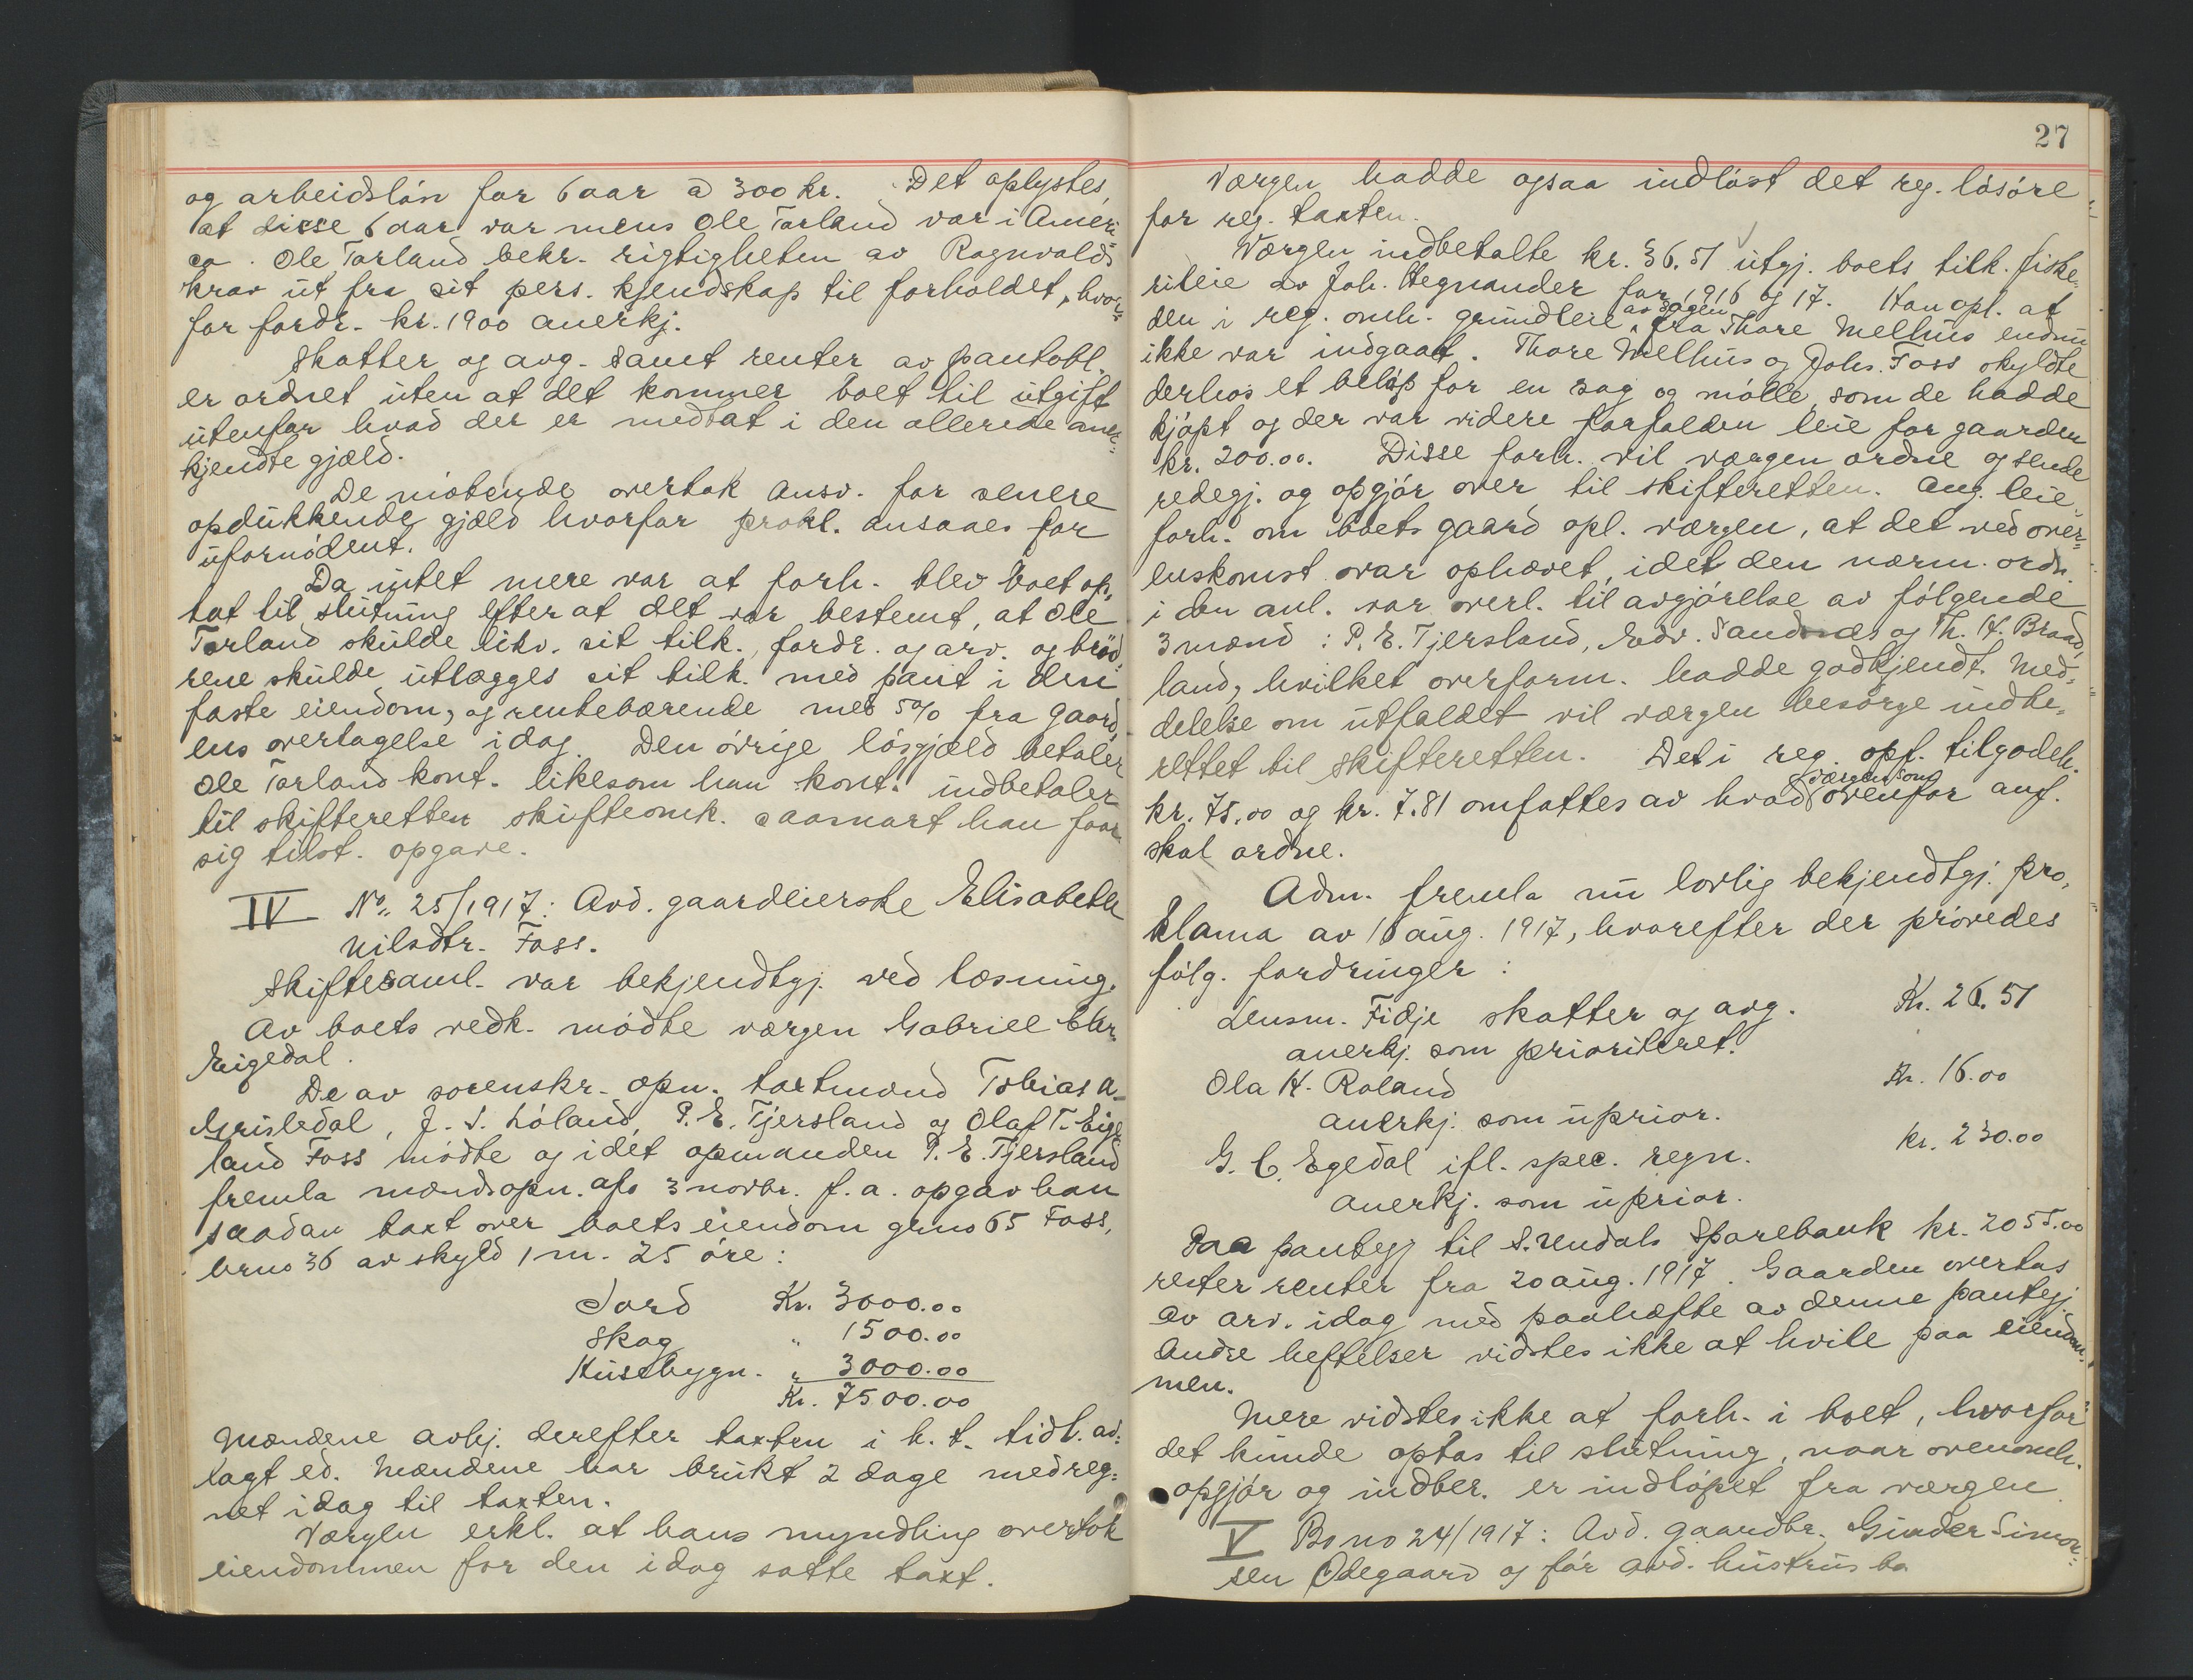 og arbeidsløn for 6 aar à 300 kr. Det oplystes,
at disse 6 aar var mens Ole Tarland var i Ameri-
ca. Ole Tarland bekr. rigtigheten av Ragnvalds
krav ut fra sit pers. kjendskap til forholdet, hvor-
for fordr. kr. 1900 anerkj.
Skatter og avg. samt renter av pantobl.
er ordnet uten at det kommer boet til utgift
utenfor hvad der er medtat i den allerede aner-
kjendte gjæld.
De møtende overtok ansv. for senere
opdukkende gjæld hvorfor prokl. ansaaes for
ufornødent.
Da intet mere var at forh. blev boet op-
tat til slutning efter at det var bestemt, at Ole
Tarland skulde likv. sit tilk., fordr. og arv. og brød-
rene skulde utlægges sit tilk. med pant i den
faste eiendom, og rentebærende med 5% fra gaard-
ens overtagelse idag. Den øvrige løsgjæld betaler
Ole Tarland kont. likesom han kont. indbetaler
til skifteretten skifteomk. saasnart han faar
sig tilst. opgave.
IV No. 25/1917: Avd. gaardeierske Elisabeth
Nilsdtr. Foss.
Skiftesaml. var bekjendtgj. ved læsning.
Av boets vedk. mødte værgen Gabriel Chr.
Eigedal.
De av sorenskr. opn. taxtmænd Tobias A.
Grisledal, J. S. Løland, P. E. Tjersland og Olaf T. Eige-
land Foss mødte og idet opmanden P. E. Tjersland
fremla mændsopn. afs 3 novbr. f. a. opgav han
saadan taxt over boets eiendom grno 65 Foss,
brno 36 av skyld 1 m. 25 øre:
Jord Kr. 3000.00
Skog " 1500.00
Husebygn. " 3000.00
Kr. 7500.00
Mændene avhj. derefter taxten i h. t. tidl. av-
lagt ed. Mændene har brukt 2 dage medreg-
net idag til taxten.
Værgen erkl. at hans myndling overtok
eiendommen for den idag satte taxt.
27
Værgen hadde ogsaa indløst det reg. løsøre
for reg. taxten.
Værgen indbetalte kr. 36.51 utgj. boets tilk. fiske-
rileie av Joh. Hegnander for 1916 og 17. Han opl. at
den i reg. omh. grundleie av sagen fra Thore Melhus endnu
ikke var indgaat. Thore Melhus og Johs. Foss skyldte
derhos et beløp for en sag og mølle, som de hadde
kjøpt og der var videre forfalden leie for gaarden
kr. 200.00. Disse forh. vil værgen ordne og sende
redegj. og opgjør over til skifteretten. Ang. leie-
forh. om boets gaard opl. værgen, at det ved over-
enskomst var ophævet, idet den nærm. ordn.
i den anl. var overl. til avgjørelse av følgende
3 mænd: P. E. Tjersland, Edv. Sandnes og Th. H. Braad-
land, hvilket overform. hadde godkjendt. Med-
delelse om utfaldet vil værgen besørge indbe-
rettet til skifteretten. Det i reg. opf. tilgodeh.
kr. 75.00 og kr. 7.81 omfattes av hvad værgen som ovenfor anf.
skal ordne.
Adm. fremla nu lovlig bekjendtgj. pro-
klama av 16 aug. 1917, hvorefter der prøvedes
følg. fordringer:
Lensm. Fidje skatter og avg. Kr. 26.51
anerkj. som prioriteret.
Ola H. Roland Kr. 16.00
anerkj. som uprior.
G. C. Egedal ifl. spec. regn. kr. 230.00
anerkj. som uprior.
Paa pantegj. til S. Undals Sparebank kr. 2055.00
rester renter fra 20 aug. 1917. Gaarden overtas
av arv. idag med paahæfte av denne pantegj.
Andre heftelser vidstes ikke at hvile paa eiendom-
men.
Mere vidstes ikke at forh. i boet, hvorfor
det kunde optas til slutning, naar ovenomh.
opgjør og indber. er indløpet fra værgen.
V Bo no 24/1917: Avd. gaardbr. Gunder Simon-
sen Ødegaard og før avd. hustrus bo